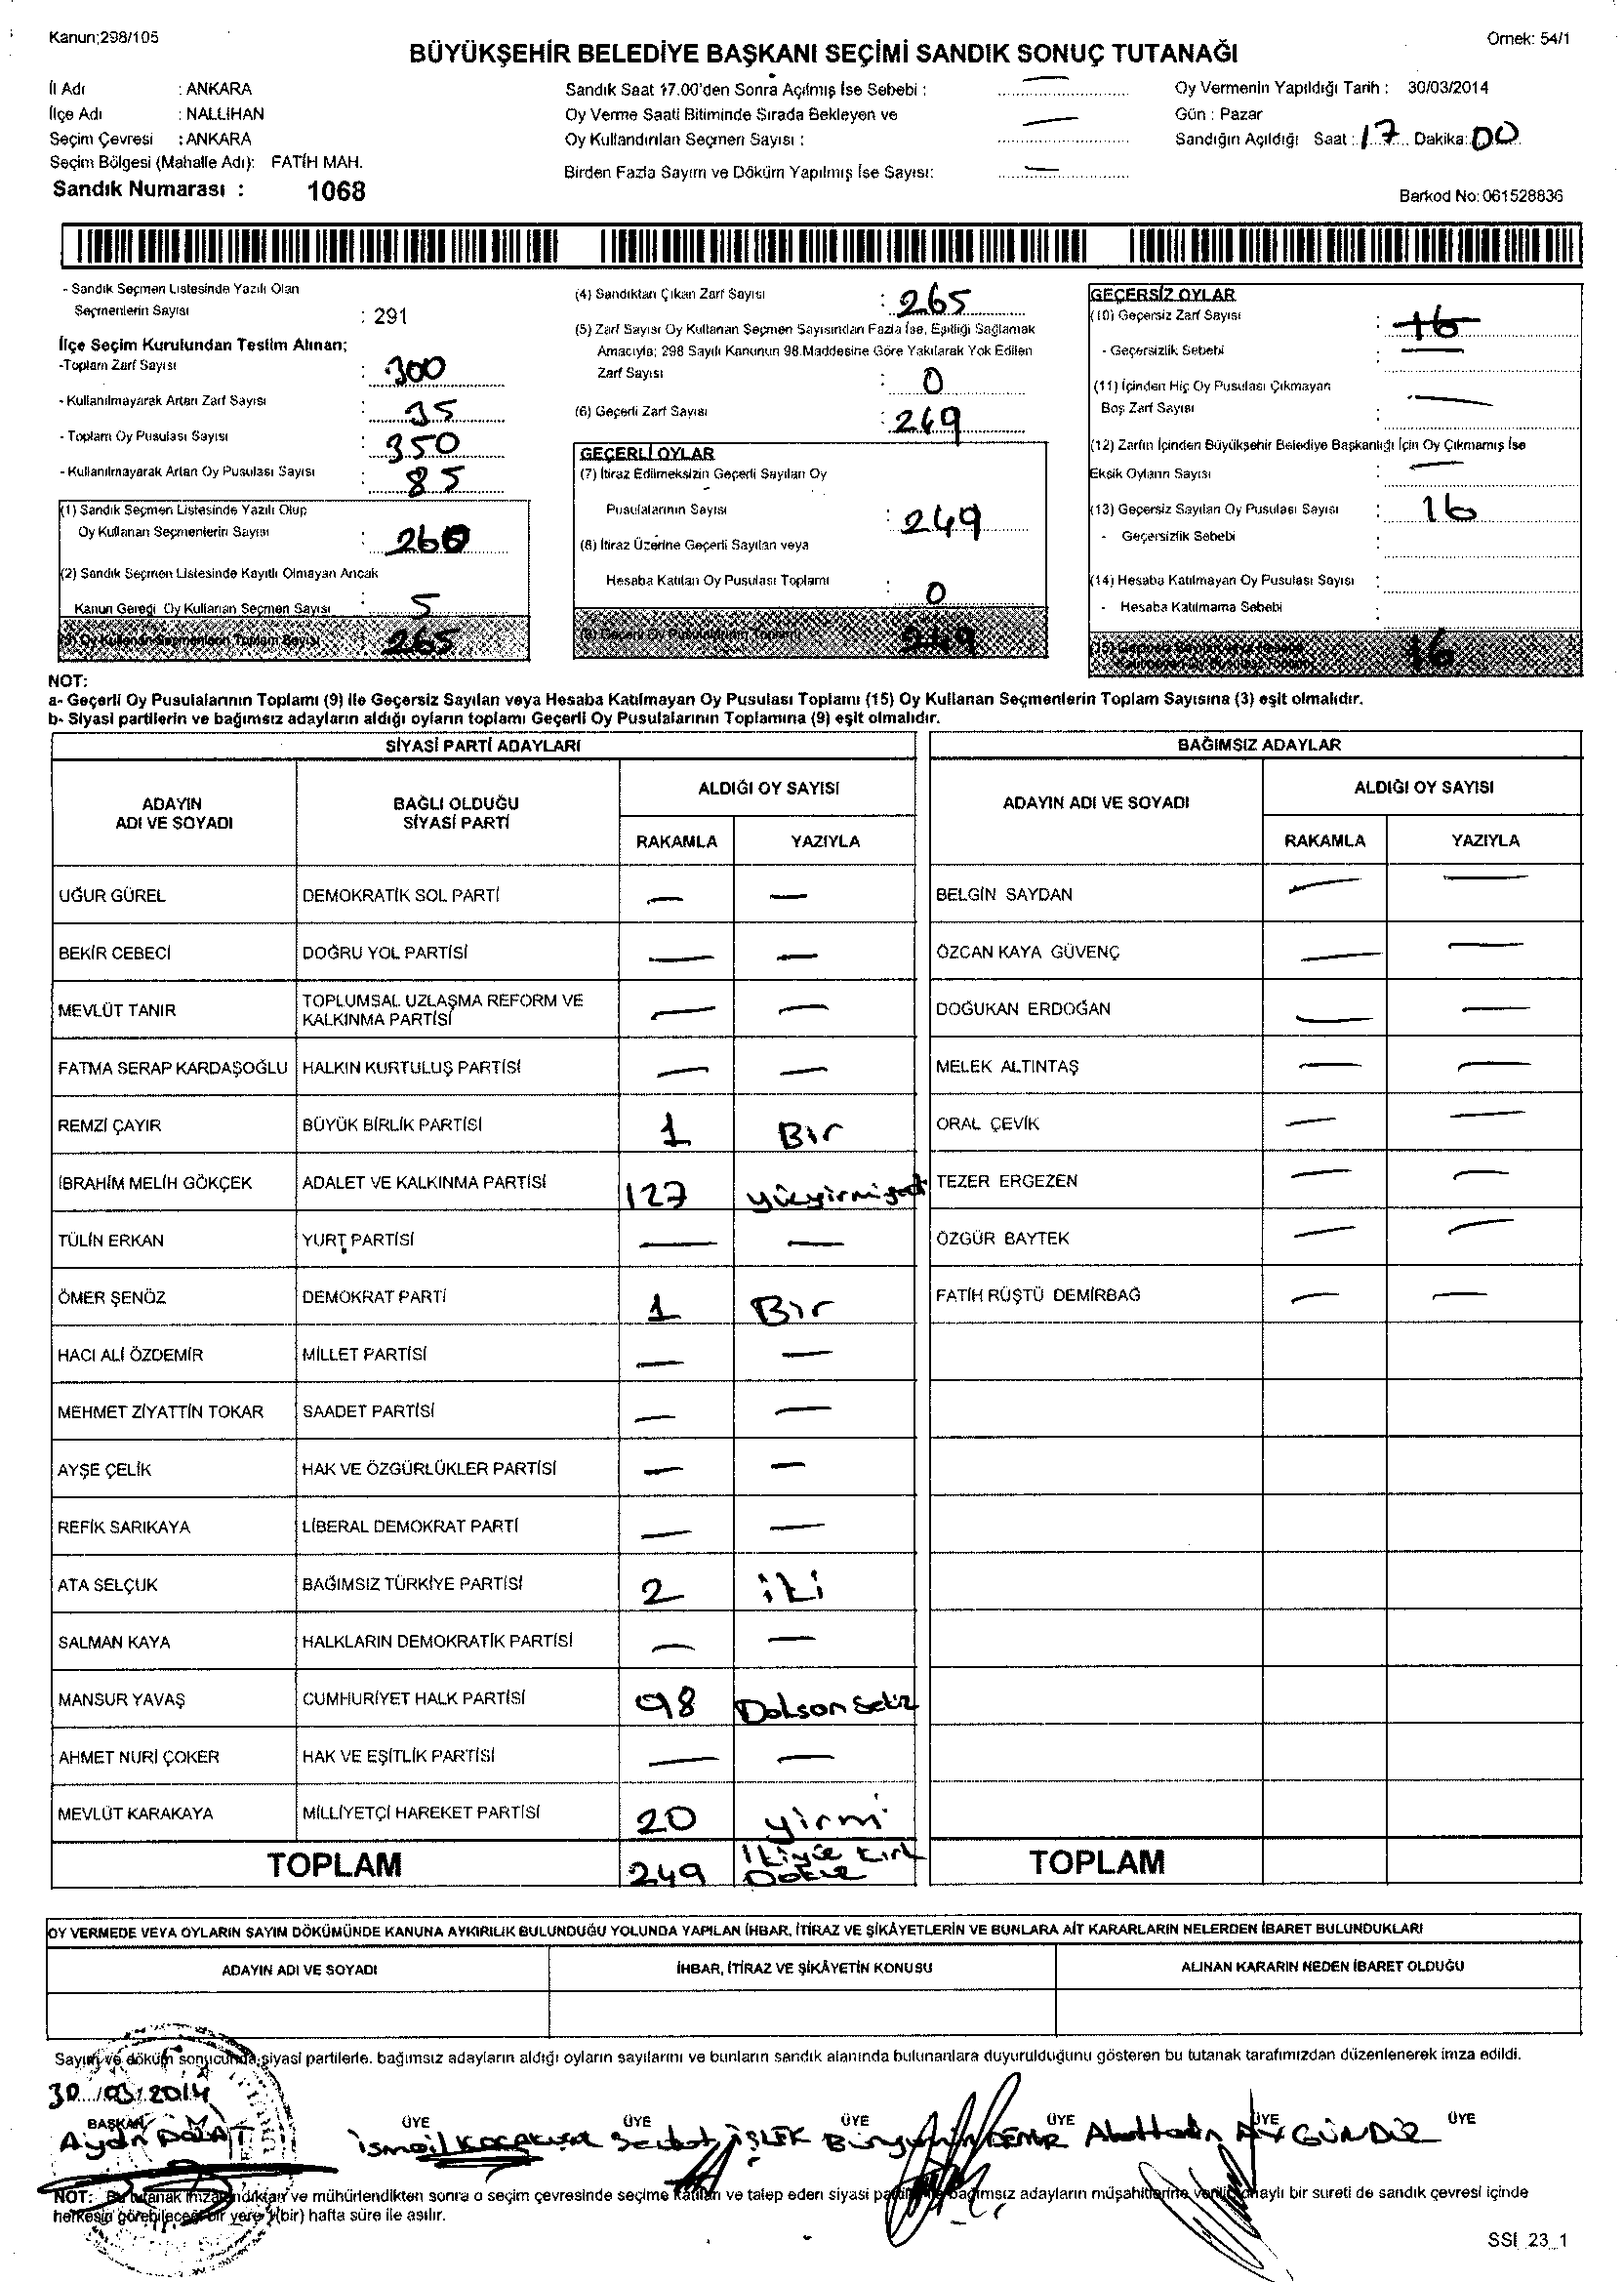 Kanun;298/105
Örnek: 54/1
BÜYÜKŞEHİR BELEDİYE BAŞKANI SEÇİMİ SANDIK SONUÇ TUTANAĞI
İl Adı : ANKARA
İlçe Adı : NALLIHAN
Seçim Çevresi : ANKARA
Seçim Bölgesi (Mahalle Adı): FATİH MAH.
Sandık Numarası : 1068
Sandık Saat 17.00'den Sonra Açılmış İse Sebebi : —
Oy Verme Saati Bitiminde Sırada Bekleyen ve
Oy Kullandırılan Seçmen Sayısı : —
Birden Fazla Sayım ve Döküm Yapılmış İse Sayısı: —
Oy Vermenin Yapıldığı Tarih : 30/03/2014
Gün : Pazar
Sandığın Açıldığı Saat : 17 Dakika: 00
Barkod No: 061528836
- Sandık Seçmen Listesinde Yazılı Olan
Seçmenlerin Sayısı : 291
İlçe Seçim Kurulundan Teslim Alınan;
-Toplam Zarf Sayısı : 300
- Kullanılmayarak Artan Zarf Sayısı : 35
- Toplam Oy Pusulası Sayısı : 350
- Kullanılmayarak Artan Oy Pusulası Sayısı : 85
(1) Sandık Seçmen Listesinde Yazılı Olup
Oy Kullanan Seçmenlerin Sayısı : 260
(2) Sandık Seçmen Listesinde Kayıtlı Olmayan Ancak
Kanun Gereği Oy Kullanan Seçmen Sayısı : 5
(3) Oy Kullanan Seçmenlerin Toplam Sayısı 265
(4) Sandıktan Çıkan Zarf Sayısı : 265
(5) Zarf Sayısı Oy Kullanan Seçmen Sayısından Fazla İse, Eşitliği Sağlamak
Amacıyla; 298 Sayılı Kanunun 98.Maddesine Göre Yakılarak Yok Edilen
Zarf Sayısı : 0
(6) Geçerli Zarf Sayısı : 249
GEÇERLİ OYLAR
(7) İtiraz Edilmeksizin Geçerli Sayılan Oy
Pusulalarının Sayısı : 249
(8) İtiraz Üzerine Geçerli Sayılan veya
Hesaba Katılan Oy Pusulası Toplamı : 0
(9) Geçerli Oy Pusulalarının Toplamı 249
GEÇERSİZ OYLAR
(10) Geçersiz Zarf Sayısı : 16
- Geçersizlik Sebebi : —
(11) İçinden Hiç Oy Pusulası Çıkmayan
Boş Zarf Sayısı : —
(12) Zarfın İçinden Büyükşehir Belediye Başkanlığı İçin Oy Çıkmamış İse
Eksik Oyların Sayısı : —
(13) Geçersiz Sayılan Oy Pusulası Sayısı : 16
- Geçersizlik Sebebi :
(14) Hesaba Katılmayan Oy Pusulası Sayısı :
- Hesaba Katılmama Sebebi :
(15) Geçersiz Sayılan veya Hesaba
Katılmayan Oy Pusulası Toplamı 16
NOT:
a- Geçerli Oy Pusulalarının Toplamı (9) ile Geçersiz Sayılan veya Hesaba Katılmayan Oy Pusulası Toplamı (15) Oy Kullanan Seçmenlerin Toplam Sayısına (3) eşit olmalıdır.
b- Siyasi partilerin ve bağımsız adayların aldığı oyların toplamı Geçerli Oy Pusulalarının Toplamına (9) eşit olmalıdır.
SİYASİ PARTİ ADAYLARI
ADAYIN ADI VE SOYADI BAĞLI OLDUĞU SİYASİ PARTİ ALDIĞI OY SAYISI
RAKAMLA YAZIYLA
UĞUR GÜREL DEMOKRATİK SOL PARTİ — —
BEKİR CEBECİ DOĞRU YOL PARTİSİ — —
MEVLÜT TANIR TOPLUMSAL UZLAŞMA REFORM VE KALKINMA PARTİSİ — —
FATMA SERAP KARDAŞOĞLU HALKIN KURTULUŞ PARTİSİ — —
REMZİ ÇAYIR BÜYÜK BİRLİK PARTİSİ 1 Bir
İBRAHİM MELİH GÖKÇEK ADALET VE KALKINMA PARTİSİ 127
TÜLİN ERKAN YURT PARTİSİ — —
ÖMER ŞENÖZ DEMOKRAT PARTİ 1 Bir
HACI ALİ ÖZDEMİR MİLLET PARTİSİ — —
MEHMET ZİYATTİN TOKAR SAADET PARTİSİ — —
AYŞE ÇELİK HAK VE ÖZGÜRLÜKLER PARTİSİ — —
REFİK SARIKAYA LİBERAL DEMOKRAT PARTİ — —
ATA SELÇUK BAĞIMSIZ TÜRKİYE PARTİSİ 2 iki
SALMAN KAYA HALKLARIN DEMOKRATİK PARTİSİ — —
MANSUR YAVAŞ CUMHURİYET HALK PARTİSİ 98 Doksan Sekiz
AHMET NURİ ÇOKER HAK VE EŞİTLİK PARTİSİ — —
MEVLÜT KARAKAYA MİLLİYETÇİ HAREKET PARTİSİ 20 yirmi
TOPLAM 249 İkiyüz Kırk Dokuz
BAĞIMSIZ ADAYLAR
ADAYIN ADI VE SOYADI ALDIĞI OY SAYISI
RAKAMLA YAZIYLA
BELGİN SAYDAN — —
ÖZCAN KAYA GÜVENÇ — —
DOĞUKAN ERDOĞAN — —
MELEK ALTINTAŞ — —
ORAL ÇEVİK — —
TEZER ERGEZEN — —
ÖZGÜR BAYTEK — —
FATİH RÜŞTÜ DEMİRBAĞ — —
TOPLAM
OY VERMEDE VEYA OYLARIN SAYIM DÖKÜMÜNDE KANUNA AYKIRILIK BULUNDUĞU YOLUNDA YAPILAN İHBAR, İTİRAZ VE ŞİKÂYETLERİN VE BUNLARA AİT KARARLARIN NELERDEN İBARET BULUNDUKLARI
ADAYIN ADI VE SOYADI İHBAR, İTİRAZ VE ŞİKÂYETİN KONUSU ALINAN KARARIN NEDEN İBARET OLDUĞU
Sayım ve döküm sonucunda siyasi partilerle, bağımsız adayların aldığı oyların sayılarını ve bunların sandık alanında bulunanlara duyurulduğunu gösteren bu tutanak tarafımızdan düzenlenerek imza edildi.
30/03/2014
BAŞKAN ÜYE ÜYE ÜYE ÜYE ÜYE ÜYE
Aydın POLAT İsmail
NOT: Bu tutanak imzalandıktan ve mühürlendikten sonra o seçim çevresinde seçime katılan ve talep eden siyasi bağımsız adayların müşahitlerine onaylı bir sureti de sandık çevresi içinde
herkesin görebileceği bir yere 1(bir) hafta süre ile asılır.
SSİ_23_1